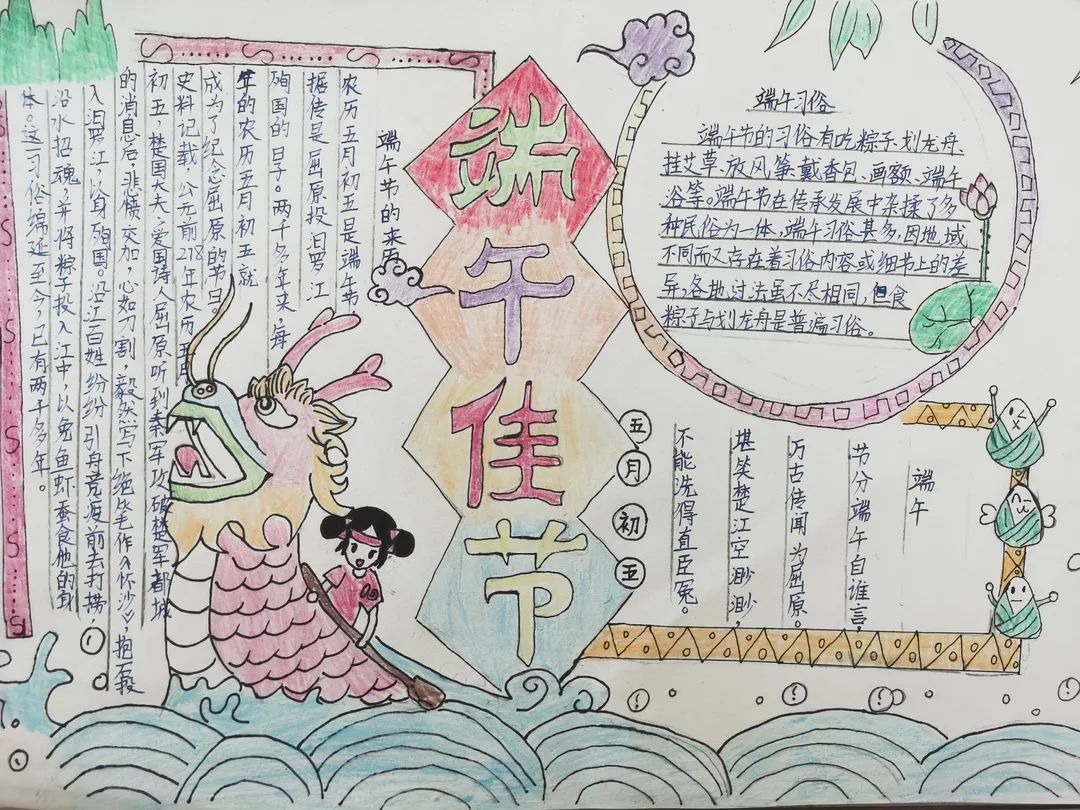 端午佳节
五月初五
端午节的来历
农历五月初五是端午节,
据传是屈原投汨罗江
殉国的日子。两千多年来,每
年的农历五月初五就
成为了纪念屈原的节日。
史料记载,公元前278年农历五月
初五,楚国大夫、爱国诗人屈原听到秦军攻破楚军都城
的消息后,悲愤交加,心如刀割,毅然写下绝笔作《怀沙》,抱石投
入汨罗江,以身殉国。沿江百姓纷纷引舟竞渡前去打捞,
沿水招魂,并将粽子投入江中,以免鱼虾蚕食他的身
体。这习俗绵延至今,已有两千多年。
端午习俗
端午节的习俗有吃粽子、划龙舟、
挂艾草、放风筝、戴香包、画额、端午
浴等。端午节在传承发展中杂揉了多
种民俗为一体,端午习俗甚多,因地域
不同而又存在着习俗内容或细节上的差
异,各地过法虽不尽相同,但食
粽子与划龙舟是普遍习俗。
端午
节分端午自谁言,
万古传闻为屈原。
堪笑楚江空渺渺,
不能洗得直臣冤。